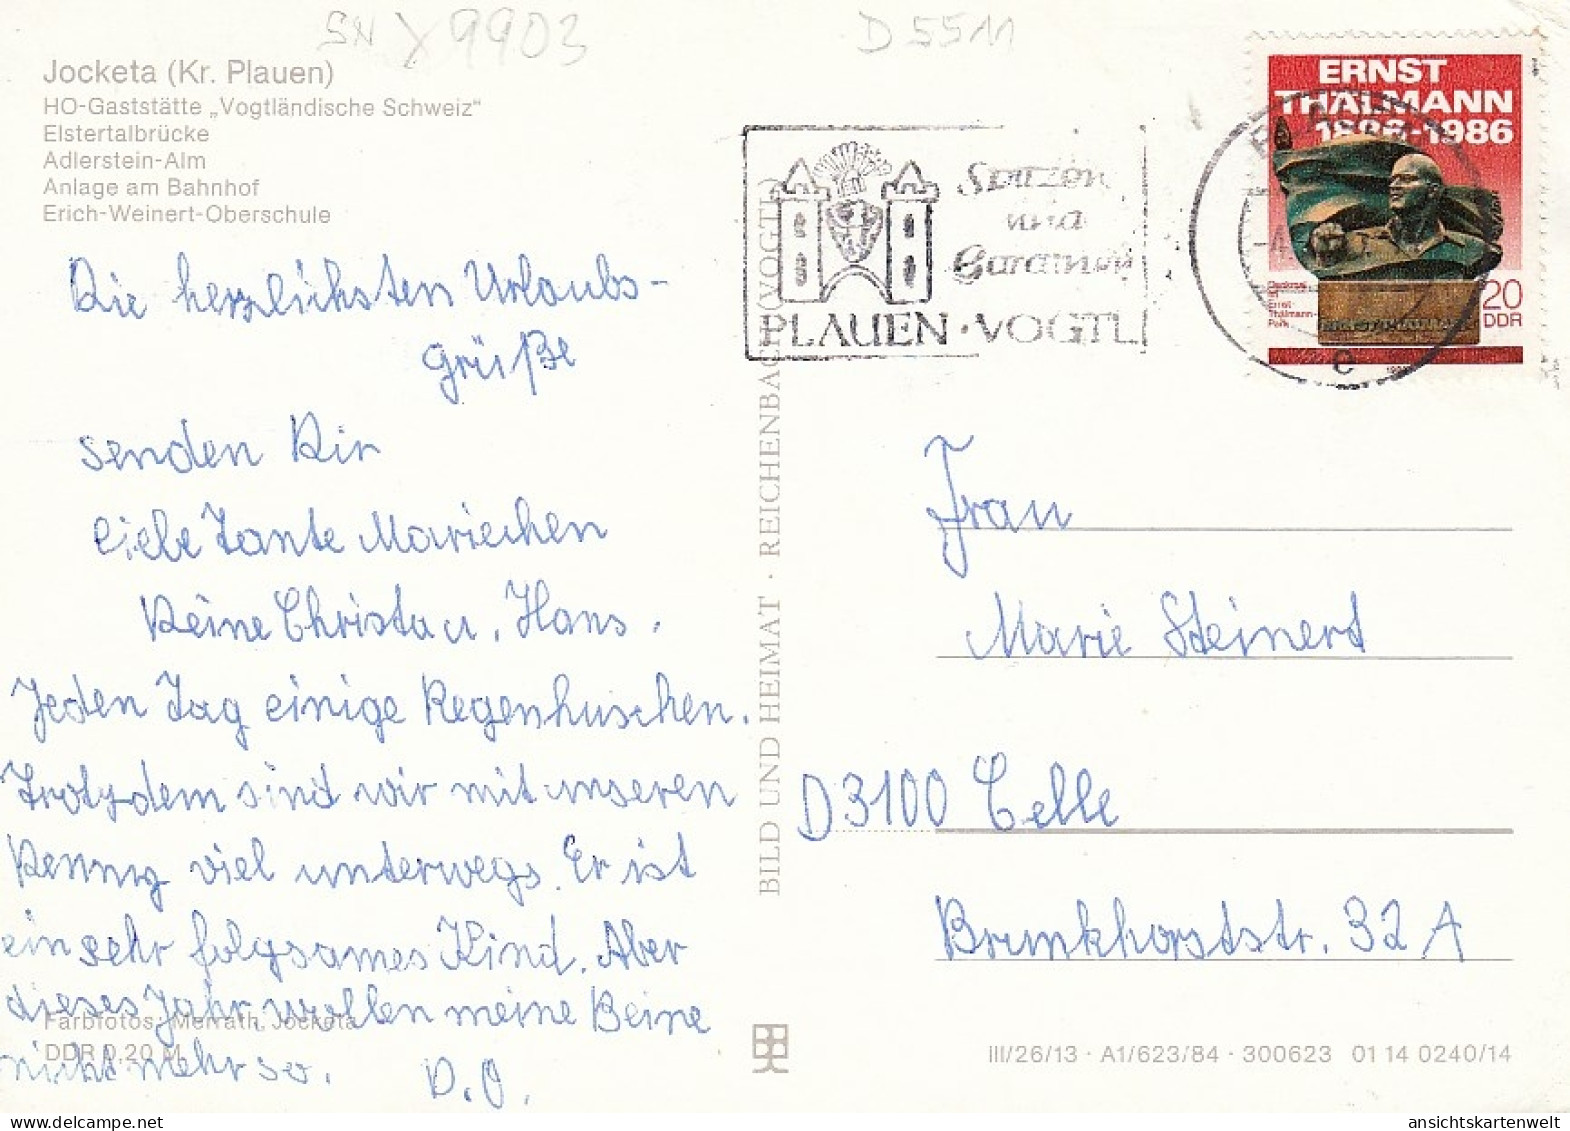 SN X 9903
D 5511
Jocketa (Kr. Plauen)
HO-Gaststätte „Vogtländische Schweiz“
Elstertalbrücke
Adlerstein-Alm
Anlage am Bahnhof
Erich-Weinert-Oberschule
Die herzlichsten Urlaubs-
grüße
senden Dir
liebe Tante Mariechen
Deine Christa u. Hans.
Jeden Tag einige Regenhuschen.
Trotzdem sind wir mit unseren
viel unterwegs. Er ist
ein sehr folgsames Kind. Aber
dieses Jahr wollen meine Beine
nicht mehr so. D.O.
Farbfotos: Merrath, Jocketa
DDR 0,20 M
BILD UND HEIMAT · REICHENBACH (VOGTL)
Spitzen
und
Gardinen
PLAUEN · VOGTL
ERNST
THÄLMANN
1886-1986
Denkmal
im
Ernst-
Thälmann-
Park
20
DDR
c
Frau
Marie Steinert
D 3100 Celle
Brunkhorststr. 32 A
III/26/13 · A1/623/84 · 300623 01 14 0240/14
ansichtskartenwelt